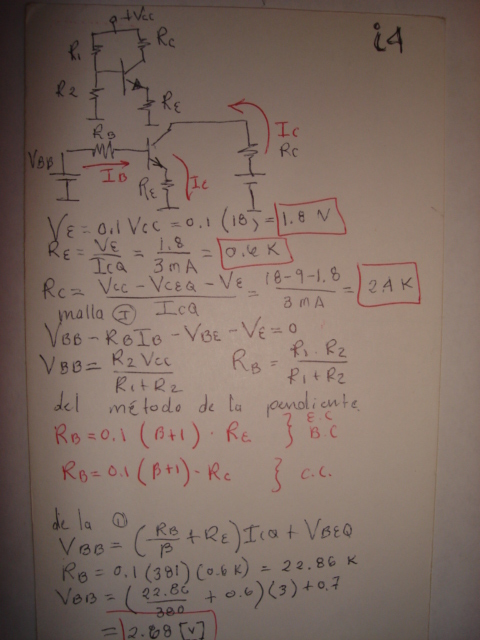 i4
+Vcc
R1
Rc
R2
RE
RB
VBB
IB
RE
Ic
Ic
Rc
VE = 0.1 Vcc = 0.1 (18) = 1.8 V
RE = VE / IcQ = 1.8 / 3 mA = 0.6 K
Rc = Vcc - VCEQ - VE / IcQ = 18-9-1.8 / 3 mA = 2.4 K
malla ①
VBB - RB IB - VBE - VE = 0
VBB = R2 Vcc / R1 + R2 RB = R1 . R2 / R1 + R2
del método de la pendiente
RB = 0.1 (β+1) · RE } E.C B.C
RB = 0.1 (β+1) · Rc } C.C.
de la ①
VBB = (RB / β + RE) IcQ + VBEQ
RB = 0.1 (381) (0.6 K) = 22.86 K
VBB = (22.86 / 380 + 0.6) (3) + 0.7
= 2.68 [V]